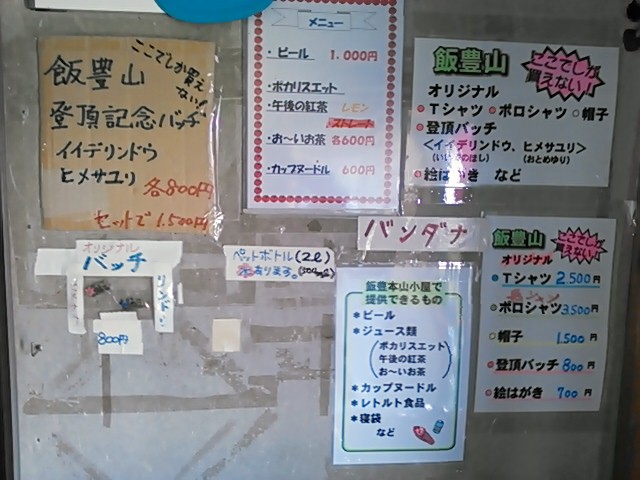 飯豊山
ここでしか買え
ない!
登頂記念バッチ
イイデリンドウ
ヒメサユリ
各800円
セットで1.500円
メニュー
・ビール 1.000円
・ポカリスエット
・午後の紅茶 レモン
ストレート
・お〜いお茶 各600円
・カップヌードル 600円
飯豊山
ここでしか
買えない!
オリジナル
Tシャツ ポロシャツ 帽子
登頂バッチ
<イイデリンドウ、ヒメサユリ>
(おとめゆり)
絵はがき など
オリジナル
バッチ
リンドウ
800円
ペットボトル(2ℓ)
水あります。(500㎖)
バンダナ
飯豊本山小屋で
提供できるもの
*ビール
*ジュース類
(ポカリスエット
午後の紅茶
お〜いお茶)
*カップヌードル
*レトルト食品
*寝袋
など
飯豊山
ここでしか
買えない!
オリジナル
Tシャツ 2.500円
ポロシャツ 3.500円
帽子 1.500円
登頂バッチ 800円
絵はがき 700円